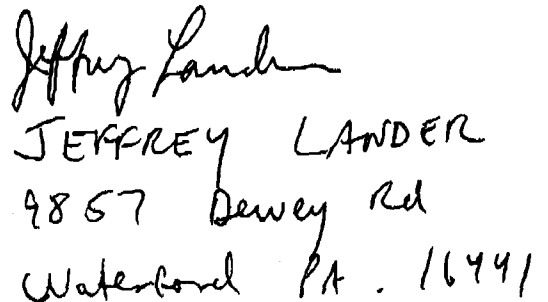 Jeffrey Lander
JEFFREY LANDER
9857 Dewey Rd
Waterford PA. 16441